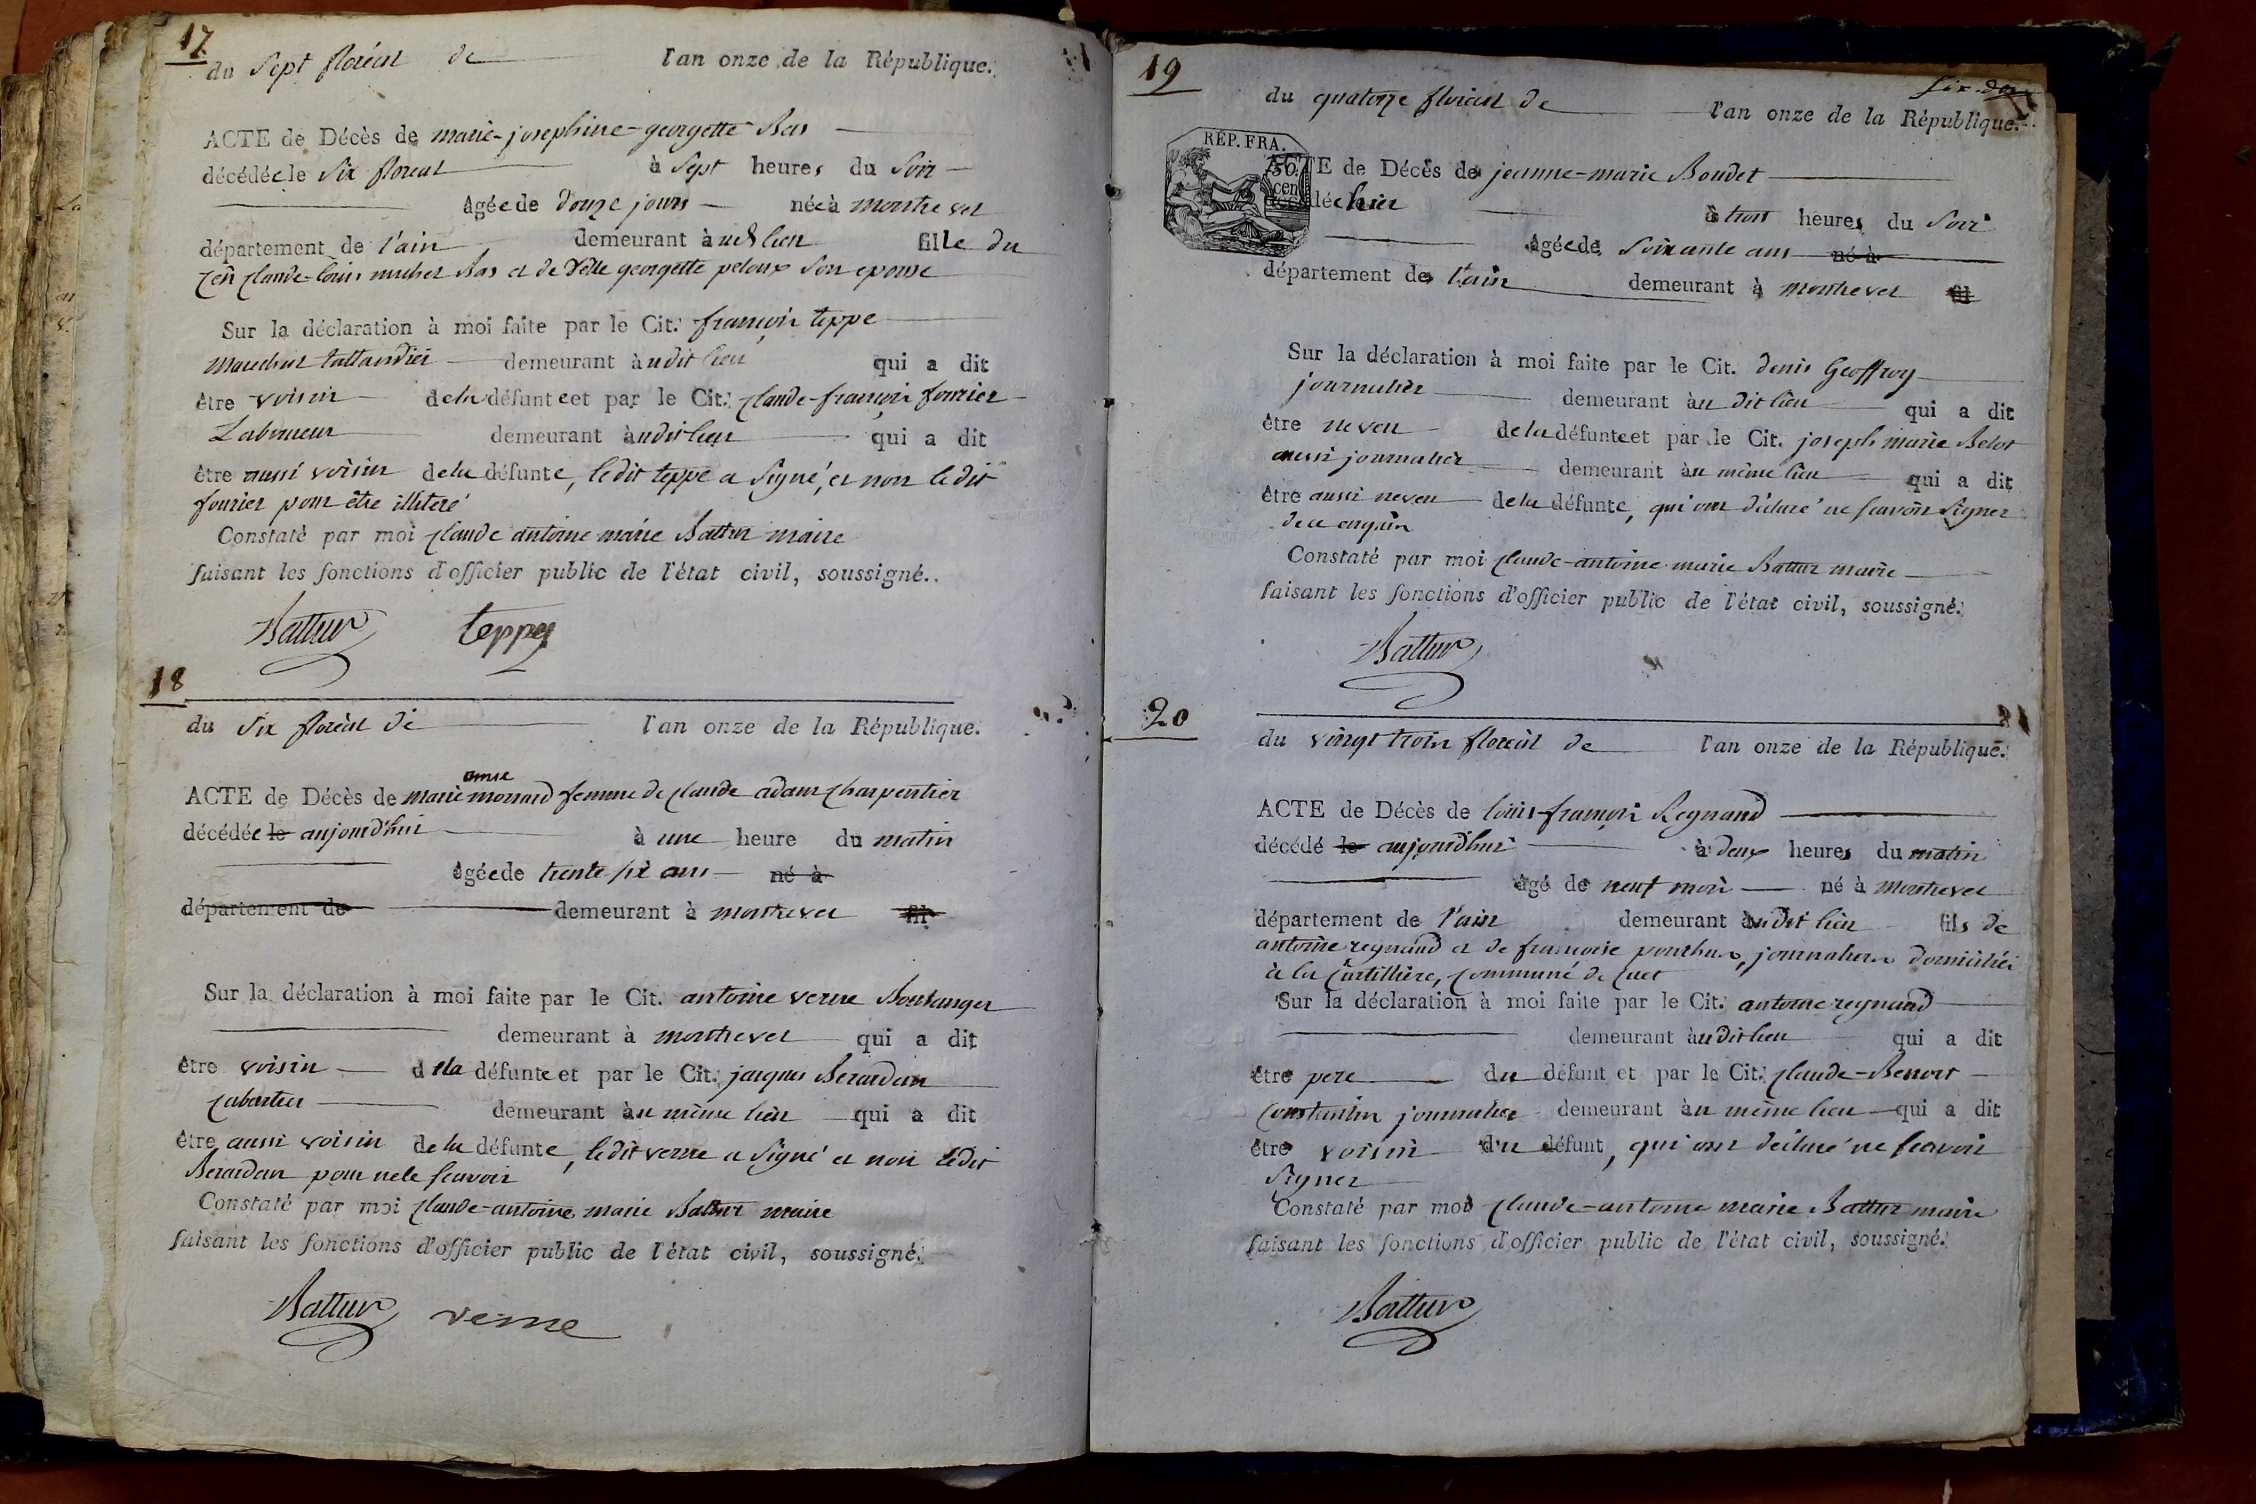 17
du sept floréal de l'an onze de la République.
ACTE de Décès de marie-josephine-georgette Bas
décédée le six floreal à sept heures du soir
âgée de douze jours née à montrevel
département de l'ain demeurant au lieu fille du
Cen claude-louis michel Bas et de georgette peloux son epouse
Sur la déclaration à moi faite par le Cit. françois teppe
marechal tallandier demeurant audit lieu qui a dit
être voisin de la défunte et par le Cit. claude-françois fourier
Laboureur demeurant audit lieu qui a dit
être aussi voisin de la défunte, ledit teppe a signé, et non ledit
fourier pour être illiteré
Constaté par moi claude antoine marie Battur maire
faisant les fonctions d'officier public de l'état civil, soussigné.
Battur teppe
18
du six floréal de l'an onze de la République.
anne
ACTE de Décès de marie monard femme de claude adam charpentier
décédée le aujourd'hui à une heure du matin
âgée de trente six ans né à
département de demeurant à montrevel fil
Sur la déclaration à moi faite par le Cit. antoine verne Boulanger
demeurant à montrevel qui a dit
être voisin de la défunte et par le Cit. jacques Berardan
cabartier demeurant au même lieu qui a dit
être aussi voisin de la défunte, ledit verne a signé et non ledit
Berardan pour ne le scavoir
Constaté par moi claude-antoine marie Battur maire
faisant les fonctions d'officier public de l'état civil, soussigné.
Battur verne
19
du quatorze floréal de l'an onze de la République.
REP. FRA.
50
cen
ACTE de Décès de jeanne-marie Boudet
décédée hier à trois heures du soir
âgée de soixante ans né à
département de l'ain demeurant à montrevel fil
Sur la déclaration à moi faite par le Cit. denis Geoffroy
journalier demeurant au dit lieu qui a dit
être neveu de la défunte et par le Cit. joseph marie Belot
aussi journalier demeurant au même lieu qui a dit
être aussi neveu de la défunte, qui ont déclaré ne scavoir signer
de ce enquis
Constaté par moi claude-antoine marie Battur maire
faisant les fonctions d'officier public de l'état civil, soussigné.
Battur
20
du vingt trois floréal de l'an onze de la République.
ACTE de Décès de louis-françois Regnaud
décédé le aujourd'hui à deux heures du matin
âgé de neuf mois né à montrevel
département de l'ain demeurant audit lieu fils de
antoine regnaud et de francoise ponthus, journaliers domiciliés
à la Curtillière, Commune de Cuet
Sur la déclaration à moi faite par le Cit. antoine regnaud
demeurant audit lieu qui a dit
être pere du défunt et par le Cit. claude-Benoit
Constantin journalier demeurant au même lieu qui a dit
être voisin du défunt, qui ont déclaré ne scavoir
signer
Constaté par moi claude-antoine marie Battur maire
faisant les fonctions d'officier public de l'état civil, soussigné.
Battur